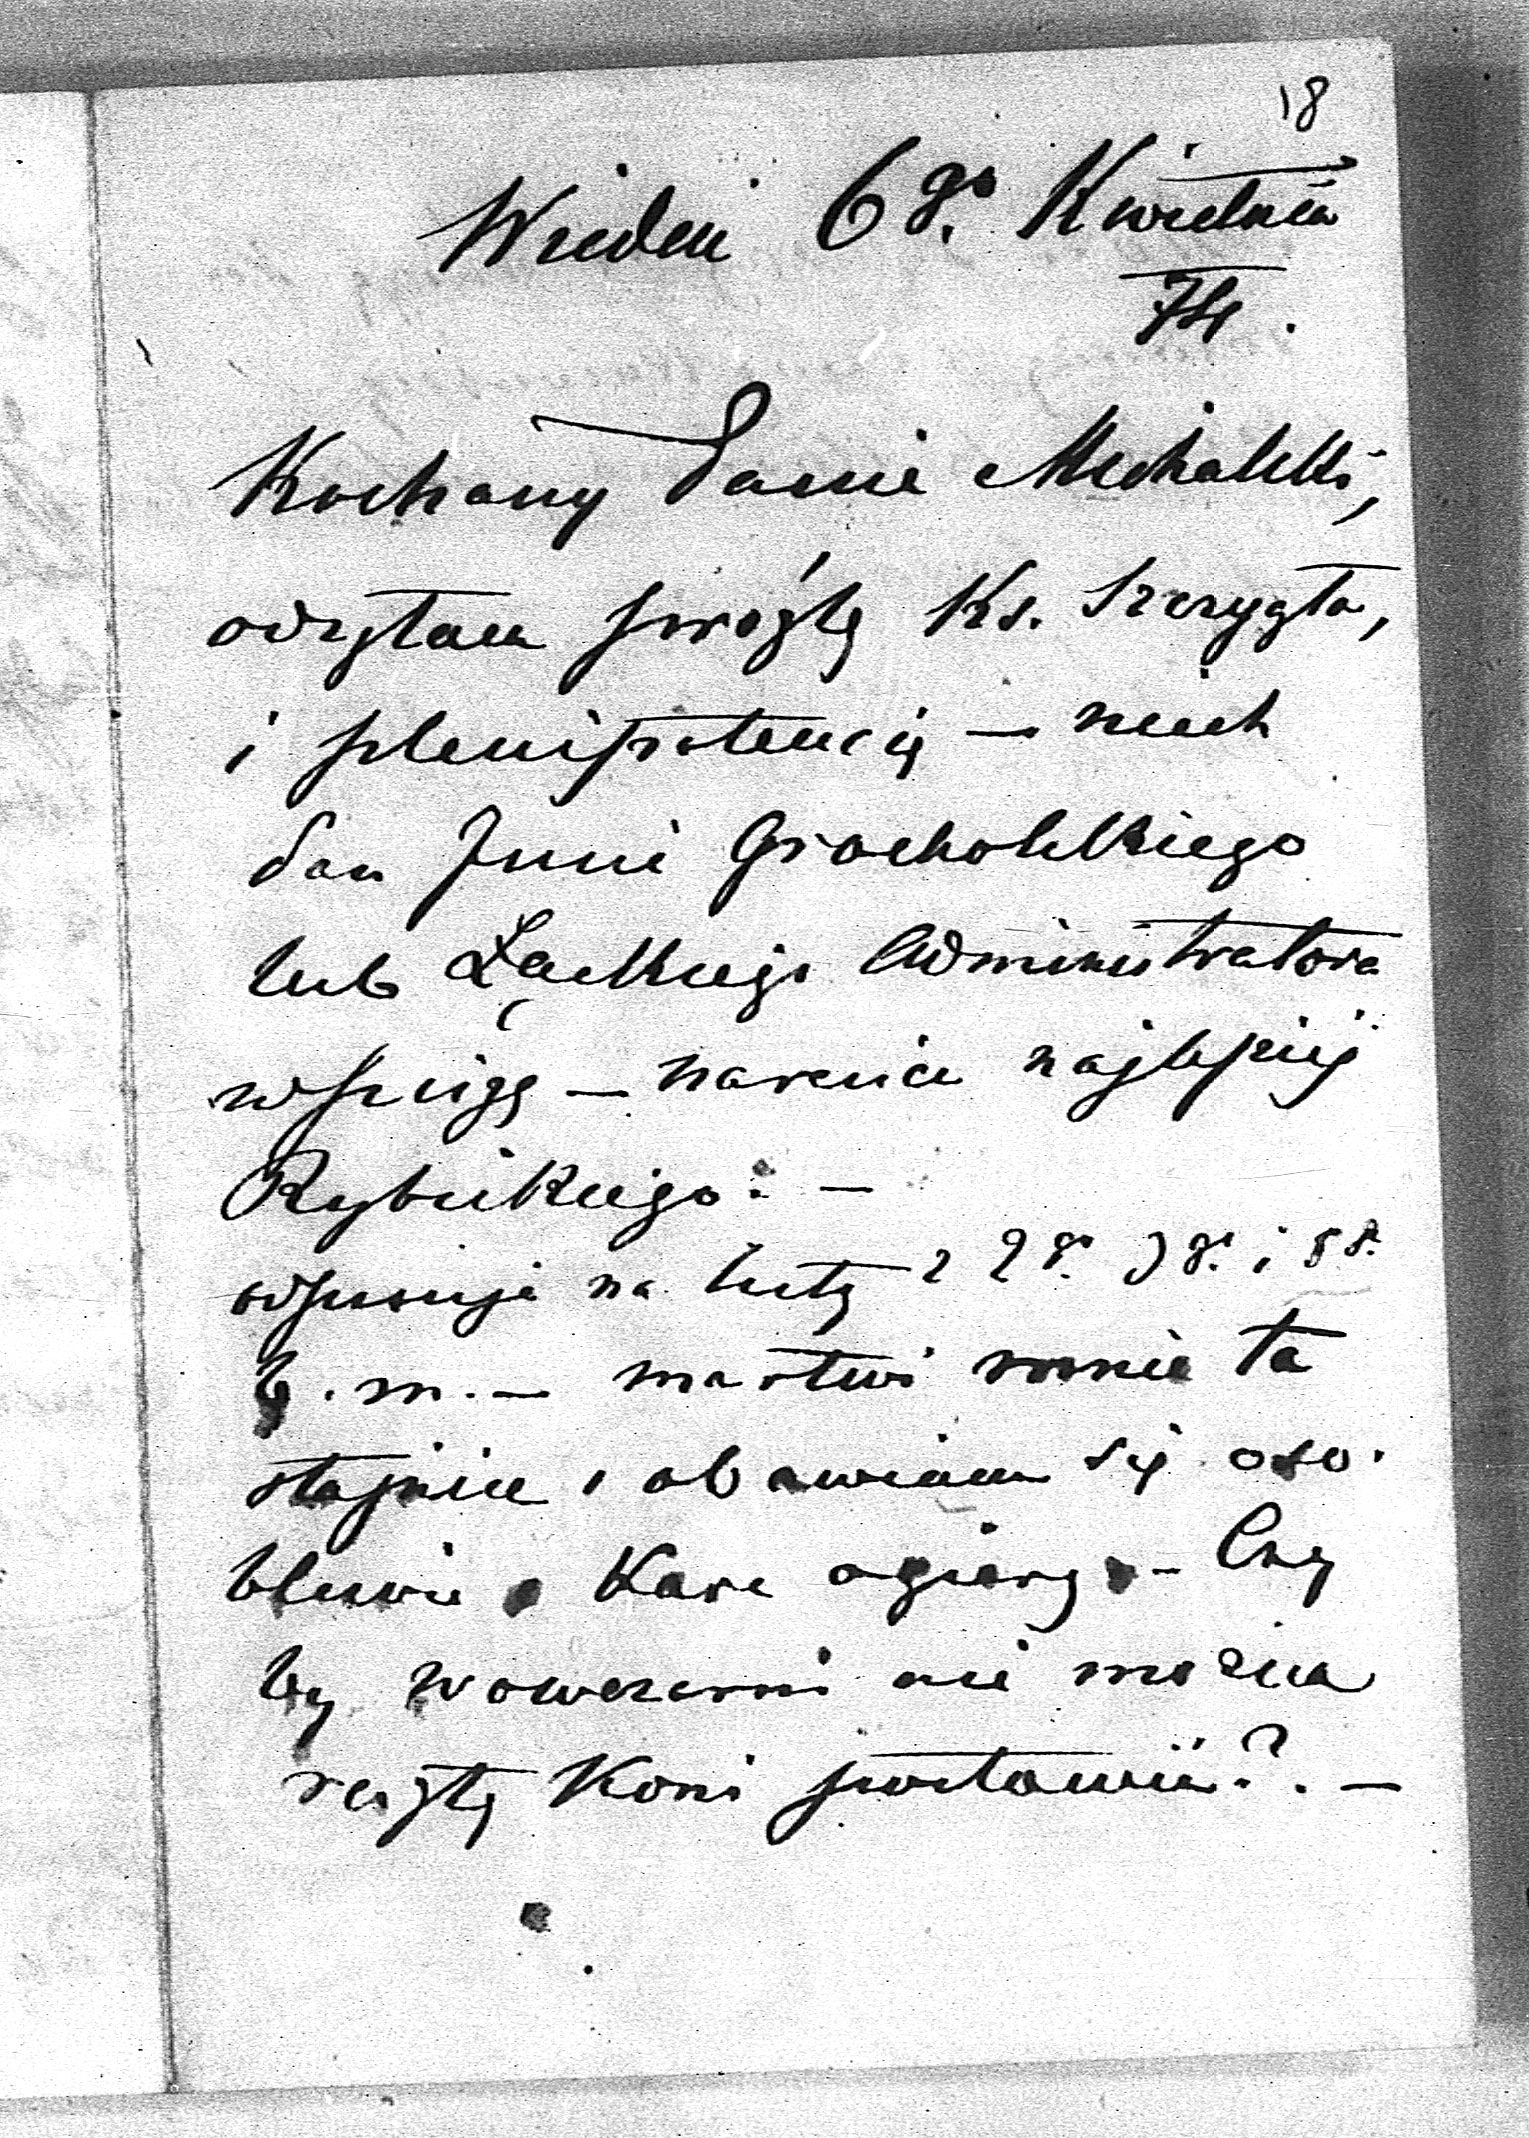 18
Wiedeń 6go Kwietnia
74.
Kochany Panie Michalski,
odsyłam prośbę Ks. Szczygła,
i plenipotencję — niech
Pan Imie Grocholskiego
lub Łąckiego Administratora
wpisze — narescie najlepiej
Rybickiego. —
odpisuję na listy z 2go 3go i
b. m. — martwi mnie ta
stajnia i obawiam się oso-
bliwie Kare ogiery — Czy
by w owczarni nie można
resztę Koni postawić? . —